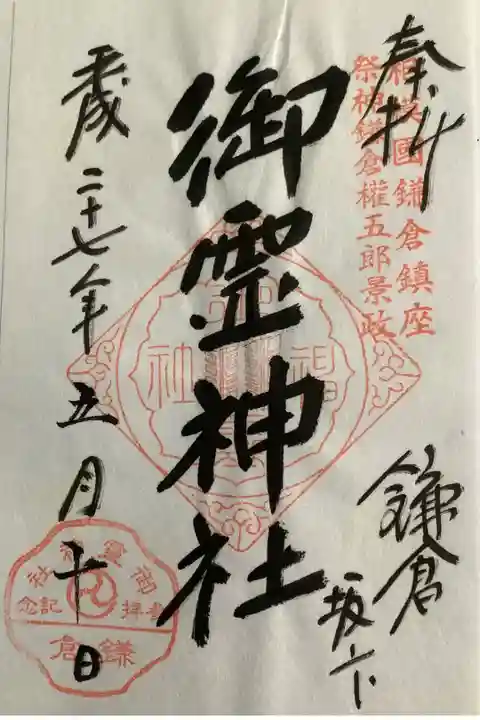 奉拝
相模國鎌倉鎮座
祭神鎌倉權五郎景政
鎌倉
坂ノ下
御霊神社
平成二十七年五月十日
神社
御霊神社
参拝記念
鎌倉